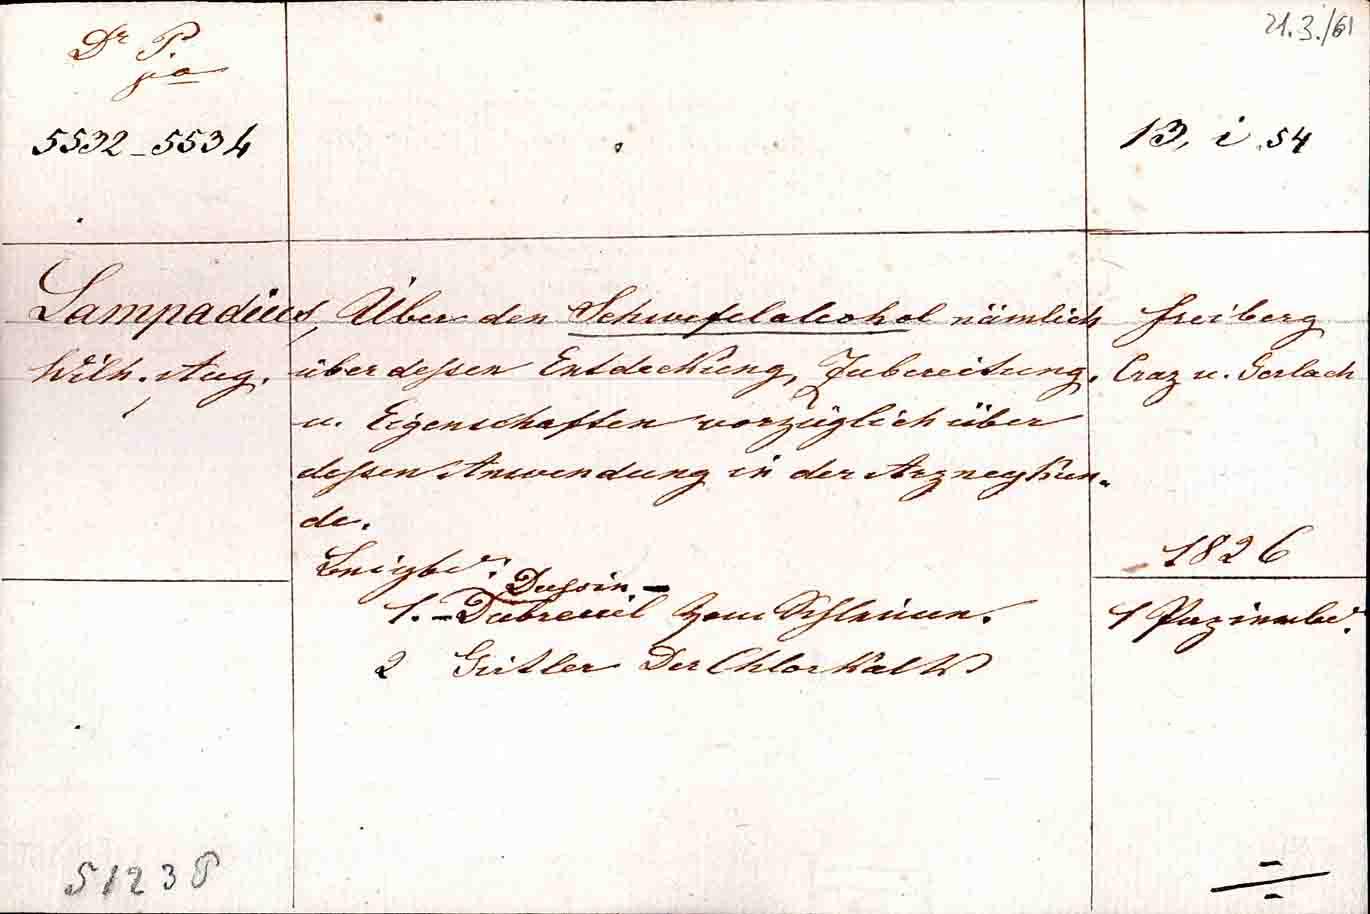 Dr P.
5532-5534
21.3./61
13, i .54
Lampadius,
Wilh. Aug.
Über den Schwefelalcohol nämlich
über dessen Entdeckung, Zubereitung,
u. Eigenschaften vorzüglich über
dessen Anwendung in der Arzneykun-
de.
Freiberg
Craz u. Gerlach
1826
1 Pappeinbd.
Beigbd.:
Dussin-
1.-Dubreuil vom Schleime.
2 Gütler Der Chlorkalk
51238